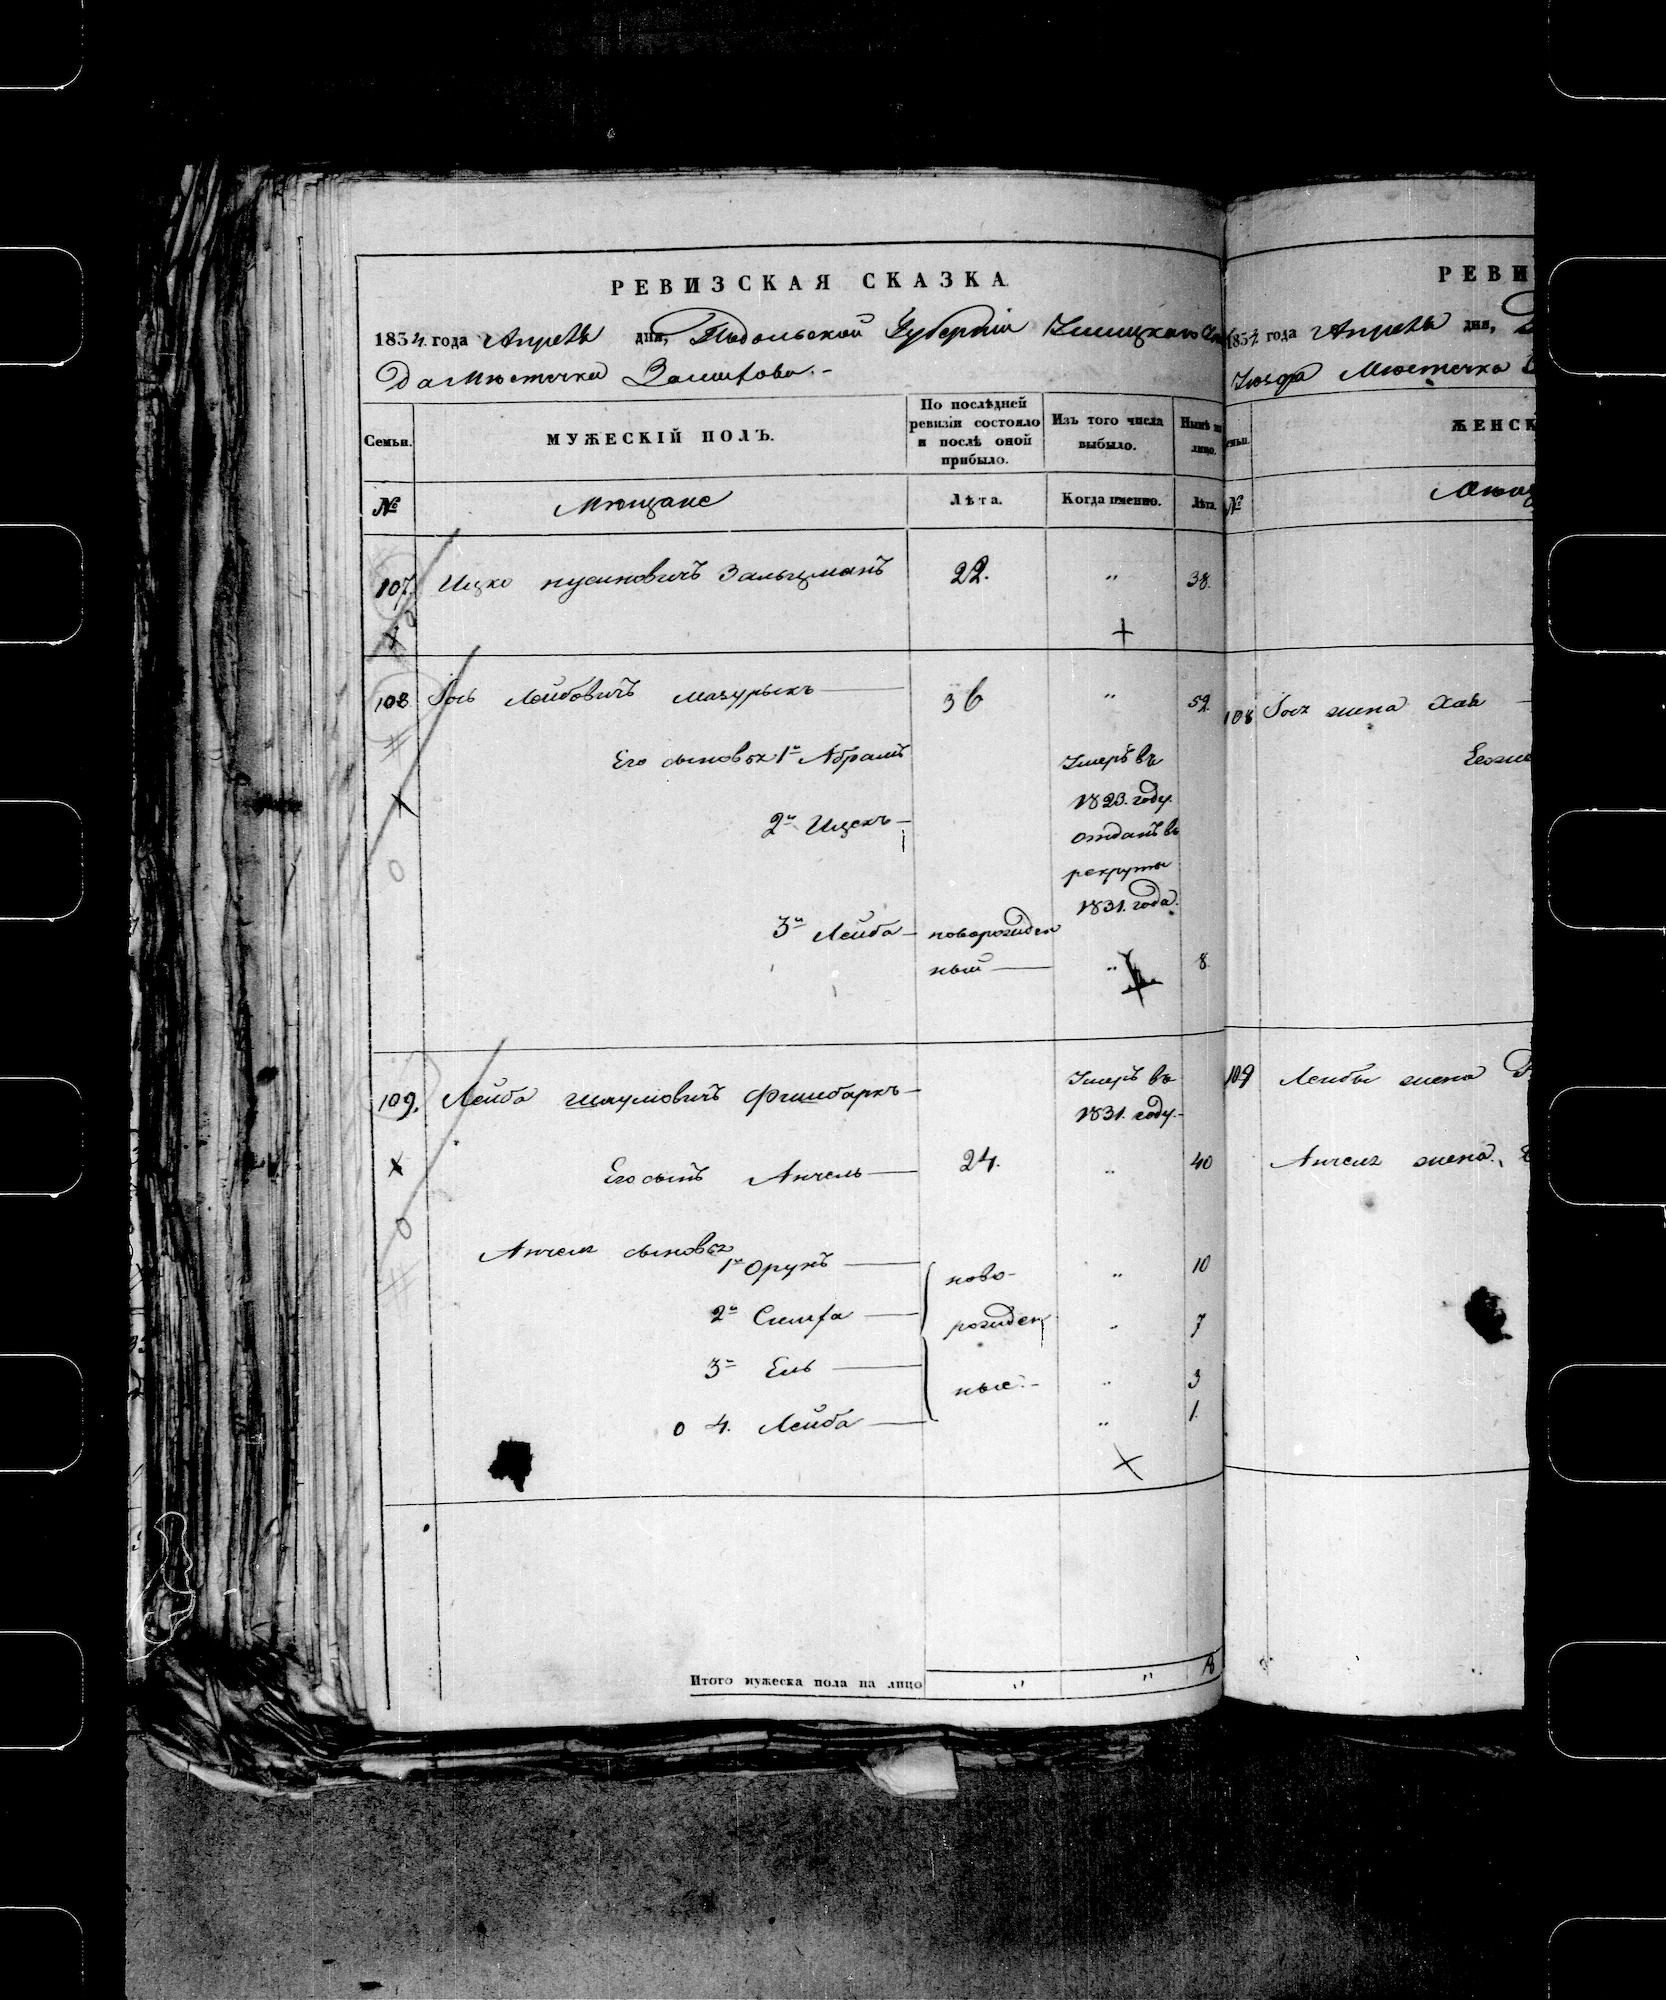 РЕВИЗСКАЯ СКАЗКА
1834. года Апреля дня, Подольской Губерніи Ушицкаго
да Мѣстечка Замѣхова.-
Семьи.
МУЖЕСКІЙ ПОЛЪ.
По послѣдней
ревизіи состояло
и послѣ оной
прибыло.
Изъ того числа
выбыло.
Нынѣ на
лицо.
№
Мѣщане
Лѣта.
Когда именно.
Лѣта.
107
Ицко Нусиновичъ Зальцманъ
22.
"
38.
108
Іось Лейбовичъ Мазурыкъ
36
"
52.
Его сыновья 1й Абрамъ
Умеръ въ
1823. году.
2й Ицекъ
отданъ въ
рекруты
1831. года.
3й Лейба
новорожден
ный
"
8.
109.
Лейба Шмулевичъ Фишбаркъ
Умеръ въ
1831. году.-
Его сынъ Анчель
24.
"
40
Анчеля сыновья
1й Орунъ
ново-
"
10
2й
рожден
"
7
3й Ель
ные.-
"
3
0 4. Лейба
"
1.
Итого мужеска пола на лицо
"
"
8
РЕВИ
1834. года Апреля дня,
Уезда Мѣстечка
ЖЕНСК
№
108 Іося жена Хая
109 Лейбы жена
Анчеля жена,